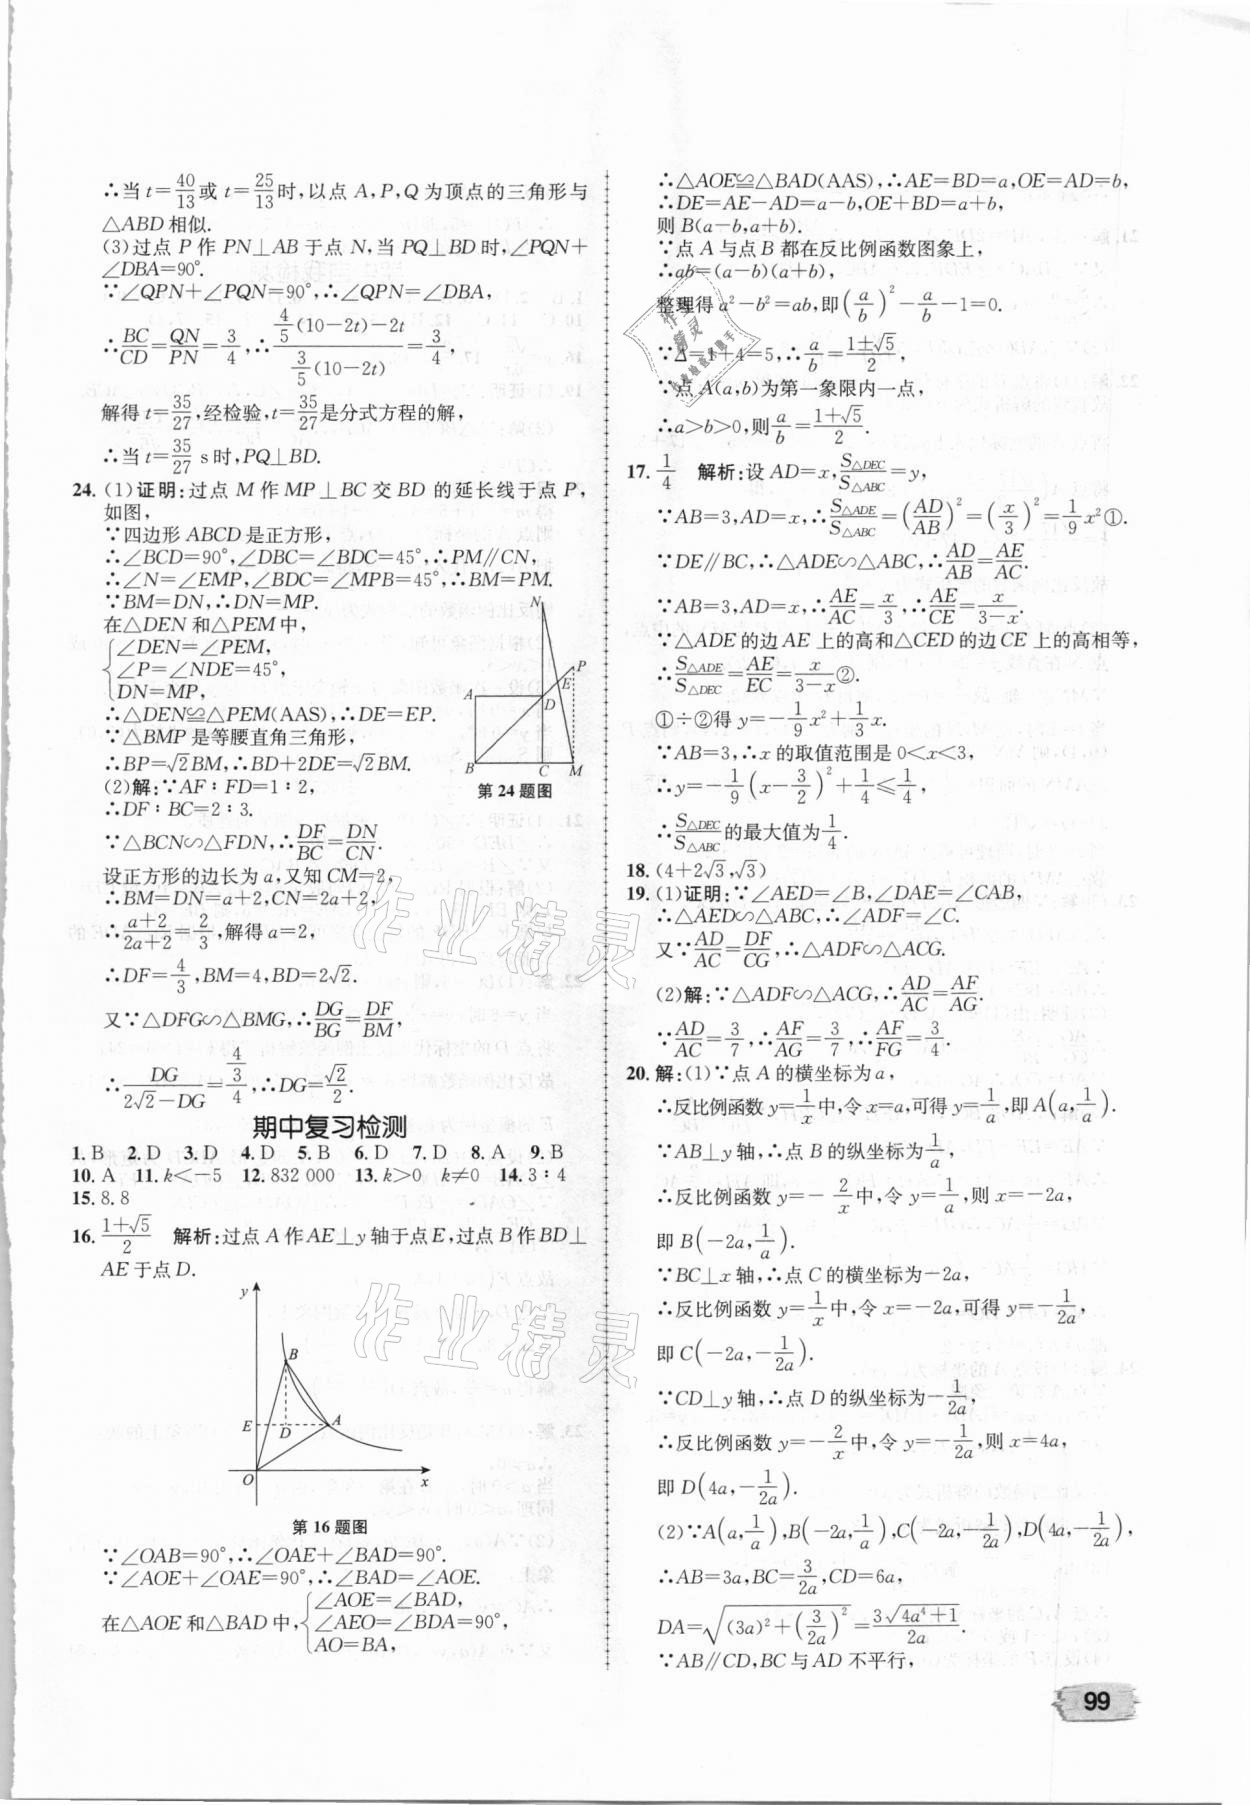 ∴当 t=40/13 或 t=25/13 时,以点 A,P,Q 为顶点的三角形与
△ABD 相似.
(3)过点 P 作 PN⊥AB 于点 N,当 PQ⊥BD 时,∠PQN+
∠DBA=90°.
∵∠QPN+∠PQN=90°,∴∠QPN=∠DBA,
∴BC/CD=QN/PN=3/4,∴(4/5(10-2t)-2t)/(3/5(10-2t))=3/4,
解得 t=35/27,经检验,t=35/27 是分式方程的解,
∴当 t=35/27 s时,PQ⊥BD.
24.(1)证明:过点 M 作 MP⊥BC 交 BD 的延长线于点 P,
如图,
∵四边形 ABCD 是正方形,
∴∠BCD=90°,∠DBC=∠BDC=45°,∴PM∥CN,
∴∠N=∠EMP,∠BDC=∠MPB=45°,∴BM=PM.
∵BM=DN,∴DN=MP.
在△DEN 和△PEM 中,
{∠DEN=∠PEM,
∠P=∠NDE=45°,
DN=MP,
∴△DEN≌△PEM(AAS),∴DE=EP.
∵△BMP 是等腰直角三角形,
∴BP=√2BM,∴BD+2DE=√2BM.
N
P
E
A
D
B
C
M
第 24 题图
(2)解:∵AF∶FD=1∶2,
∴DF∶BC=2∶3.
∵△BCN∽△FDN,∴DF/BC=DN/CN.
设正方形的边长为 a,又知 CM=2,
∴BM=DN=a+2,CN=2a+2,
∴(a+2)/(2a+2)=2/3,解得 a=2,
∴DF=4/3,BM=4,BD=2√2.
又∵△DFG∽△BMG,∴DG/BG=DF/BM,
∴DG/(2√2-DG)=(4/3)/4,∴DG=√2/2.
期中复习检测
1. B 2. D 3. D 4. D 5. B 6. D 7. D 8. A 9. B
10. A 11. k<-5 12. 832 000 13. k>0 k≠0 14. 3∶4
15. 8. 8
16. (1+√5)/2 解析:过点 A 作 AE⊥y 轴于点 E,过点 B 作 BD⊥
AE 于点 D.
y
B
E
D
A
O
x
第 16 题图
∵∠OAB=90°,∴∠OAE+∠BAD=90°.
∵∠AOE+∠OAE=90°,∴∠BAD=∠AOE.
在△AOE 和△BAD 中,{∠AOE=∠BAD,
∠AEO=∠BDA=90°,
AO=BA,
∴△AOE≌△BAD(AAS),∴AE=BD=a,OE=AD=b,
∴DE=AE-AD=a-b,OE+BD=a+b,
则 B(a-b,a+b).
∵点 A 与点 B 都在反比例函数图象上,
∴ab=(a-b)(a+b),
整理得 a²-b²=ab,即(a/b)²-a/b-1=0.
∵Δ=1+4=5,∴a/b=(1±√5)/2.
∵点 A(a,b)为第一象限内一点,
∴a>b>0,则 a/b=(1+√5)/2.
17. 1/4 解析:设 AD=x,S△DEC/S△ABC=y,
∵AB=3,AD=x,∴S△ADE/S△ABC=(AD/AB)²=(x/3)²=1/9x²①.
∵DE∥BC,∴△ADE∽△ABC,∴AD/AB=AE/AC.
∵AB=3,AD=x,∴AE/AC=x/3,∴AE/CE=x/(3-x).
∵△ADE 的边 AE 上的高和△CED 的边 CE 上的高相等,
∴S△ADE/S△DEC=AE/EC=x/(3-x)②.
①÷②得 y=-1/9x²+1/3x.
∵AB=3,∴x 的取值范围是 0<x<3,
∴y=-1/9(x-3/2)²+1/4≤1/4,
∴S△DEC/S△ABC的最大值为1/4.
18. (4+2√3,√3)
19. (1)证明:∵∠AED=∠B,∠DAE=∠CAB,
∴△AED∽△ABC,∴∠ADF=∠C.
又∵AD/AC=DF/CG,∴△ADF∽△ACG.
(2)解:∵△ADF∽△ACG,∴AD/AC=AF/AG.
∵AD/AC=3/7,∴AF/AG=3/7,∴AF/FG=3/4.
20. 解:(1)∵点 A 的横坐标为 a,
∴反比例函数 y=1/x 中,令 x=a,可得 y=1/a,即 A(a,1/a).
∵AB⊥y 轴,∴点 B 的纵坐标为1/a,
∴反比例函数 y=-2/x 中,令 y=1/a,则 x=-2a,
即 B(-2a,1/a).
∵BC⊥x 轴,∴点 C 的横坐标为-2a,
∴反比例函数 y=1/x 中,令 x=-2a,可得 y=-1/2a,
即 C(-2a,-1/2a).
∵CD⊥y 轴,∴点 D 的纵坐标为-1/2a,
∴反比例函数 y=-2/x 中,令 y=-1/2a,则 x=4a,
即 D(4a,-1/2a).
(2)∵A(a,1/a),B(-2a,1/a),C(-2a,-1/2a),D(4a,-1/2a),
∴AB=3a,BC=3/2a,CD=6a,
DA=√((3a)²+(3/2a)²)=3√(4a⁴+1)/2a.
∵AB∥CD,BC 与 AD 不平行,
99
作业精灵
作业精灵